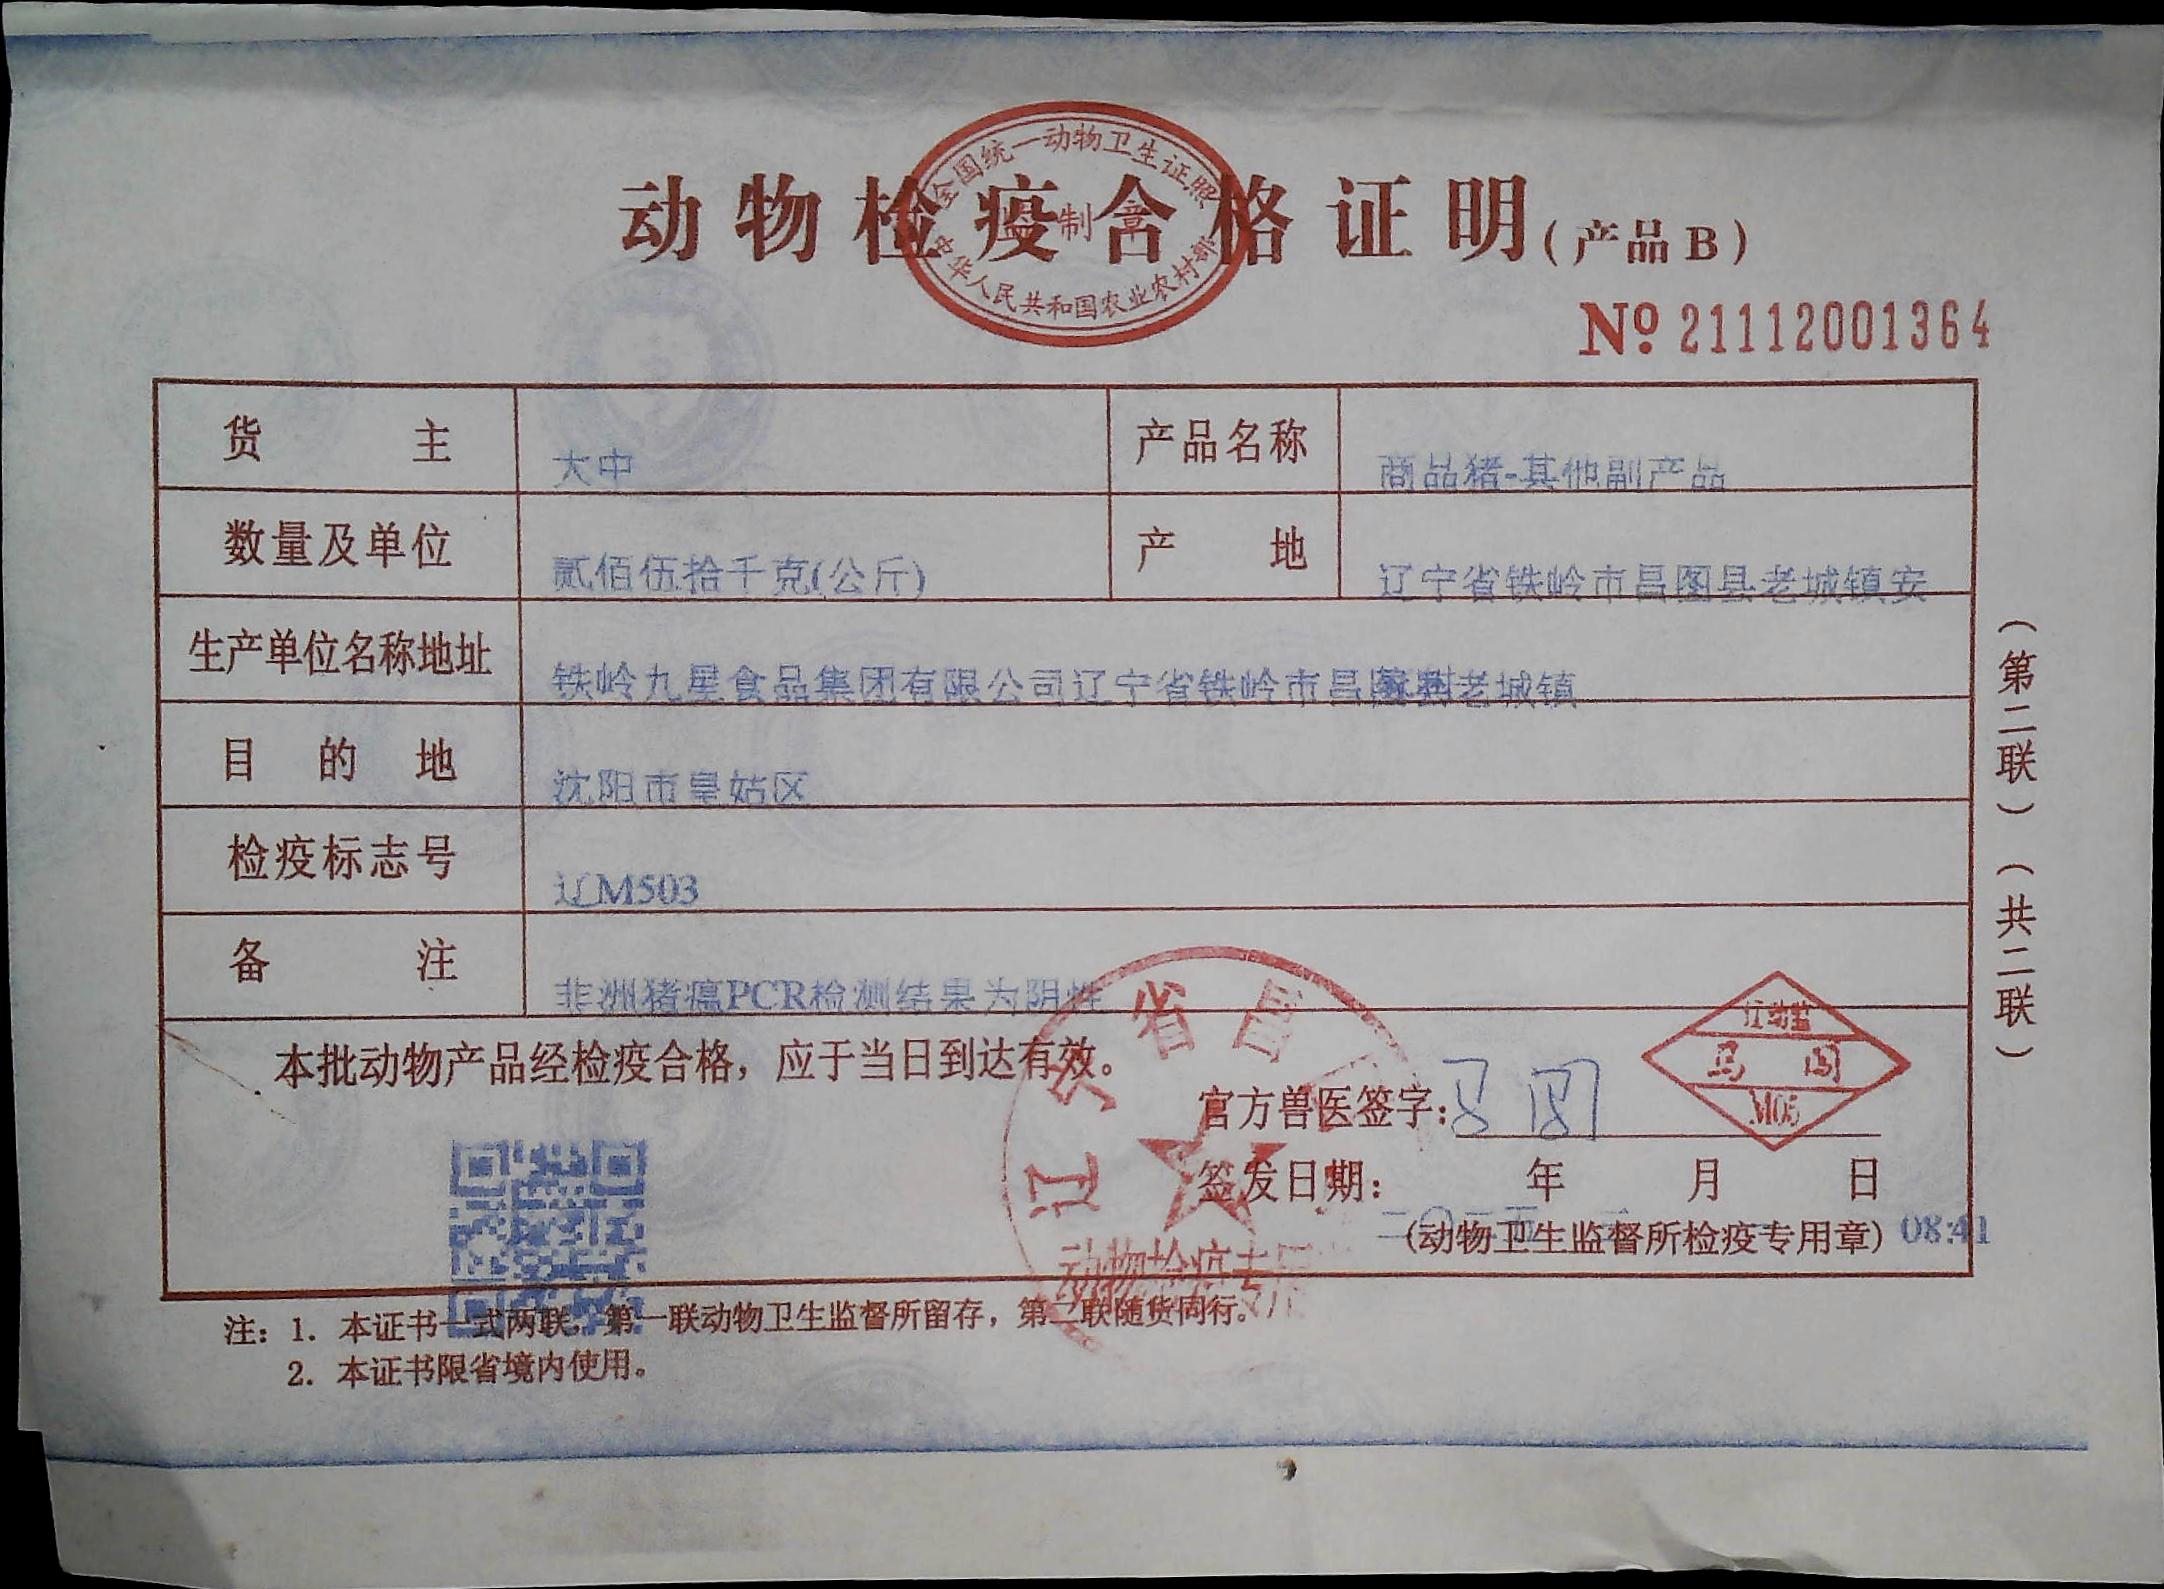 动物检疫合格证明(产品B)
全国统一动物卫生证照
监制章
中华人民共和国农业农村部
№ 21112001364
货主 大中 产品名称 商品猪-其他副产品
数量及单位 贰佰伍拾千克(公斤) 产地 辽宁省铁岭市昌图县老城镇安
生产单位名称地址 铁岭九星食品集团有限公司辽宁省铁岭市昌图县老城镇
目的地 沈阳市皇姑区
检疫标志号 辽M503
备注 非洲猪瘟PCR检测结果为阴性
本批动物产品经检疫合格，应于当日到达有效。
官方兽医签字：
辽动监
M05
签发日期： 年 月 日
(动物卫生监督所检疫专用章) 08:41
辽宁省昌
动物检疫专用
注：1. 本证书一式两联，第一联动物卫生监督所留存，第二联随货同行。
2. 本证书限省境内使用。
（第二联）（共二联）